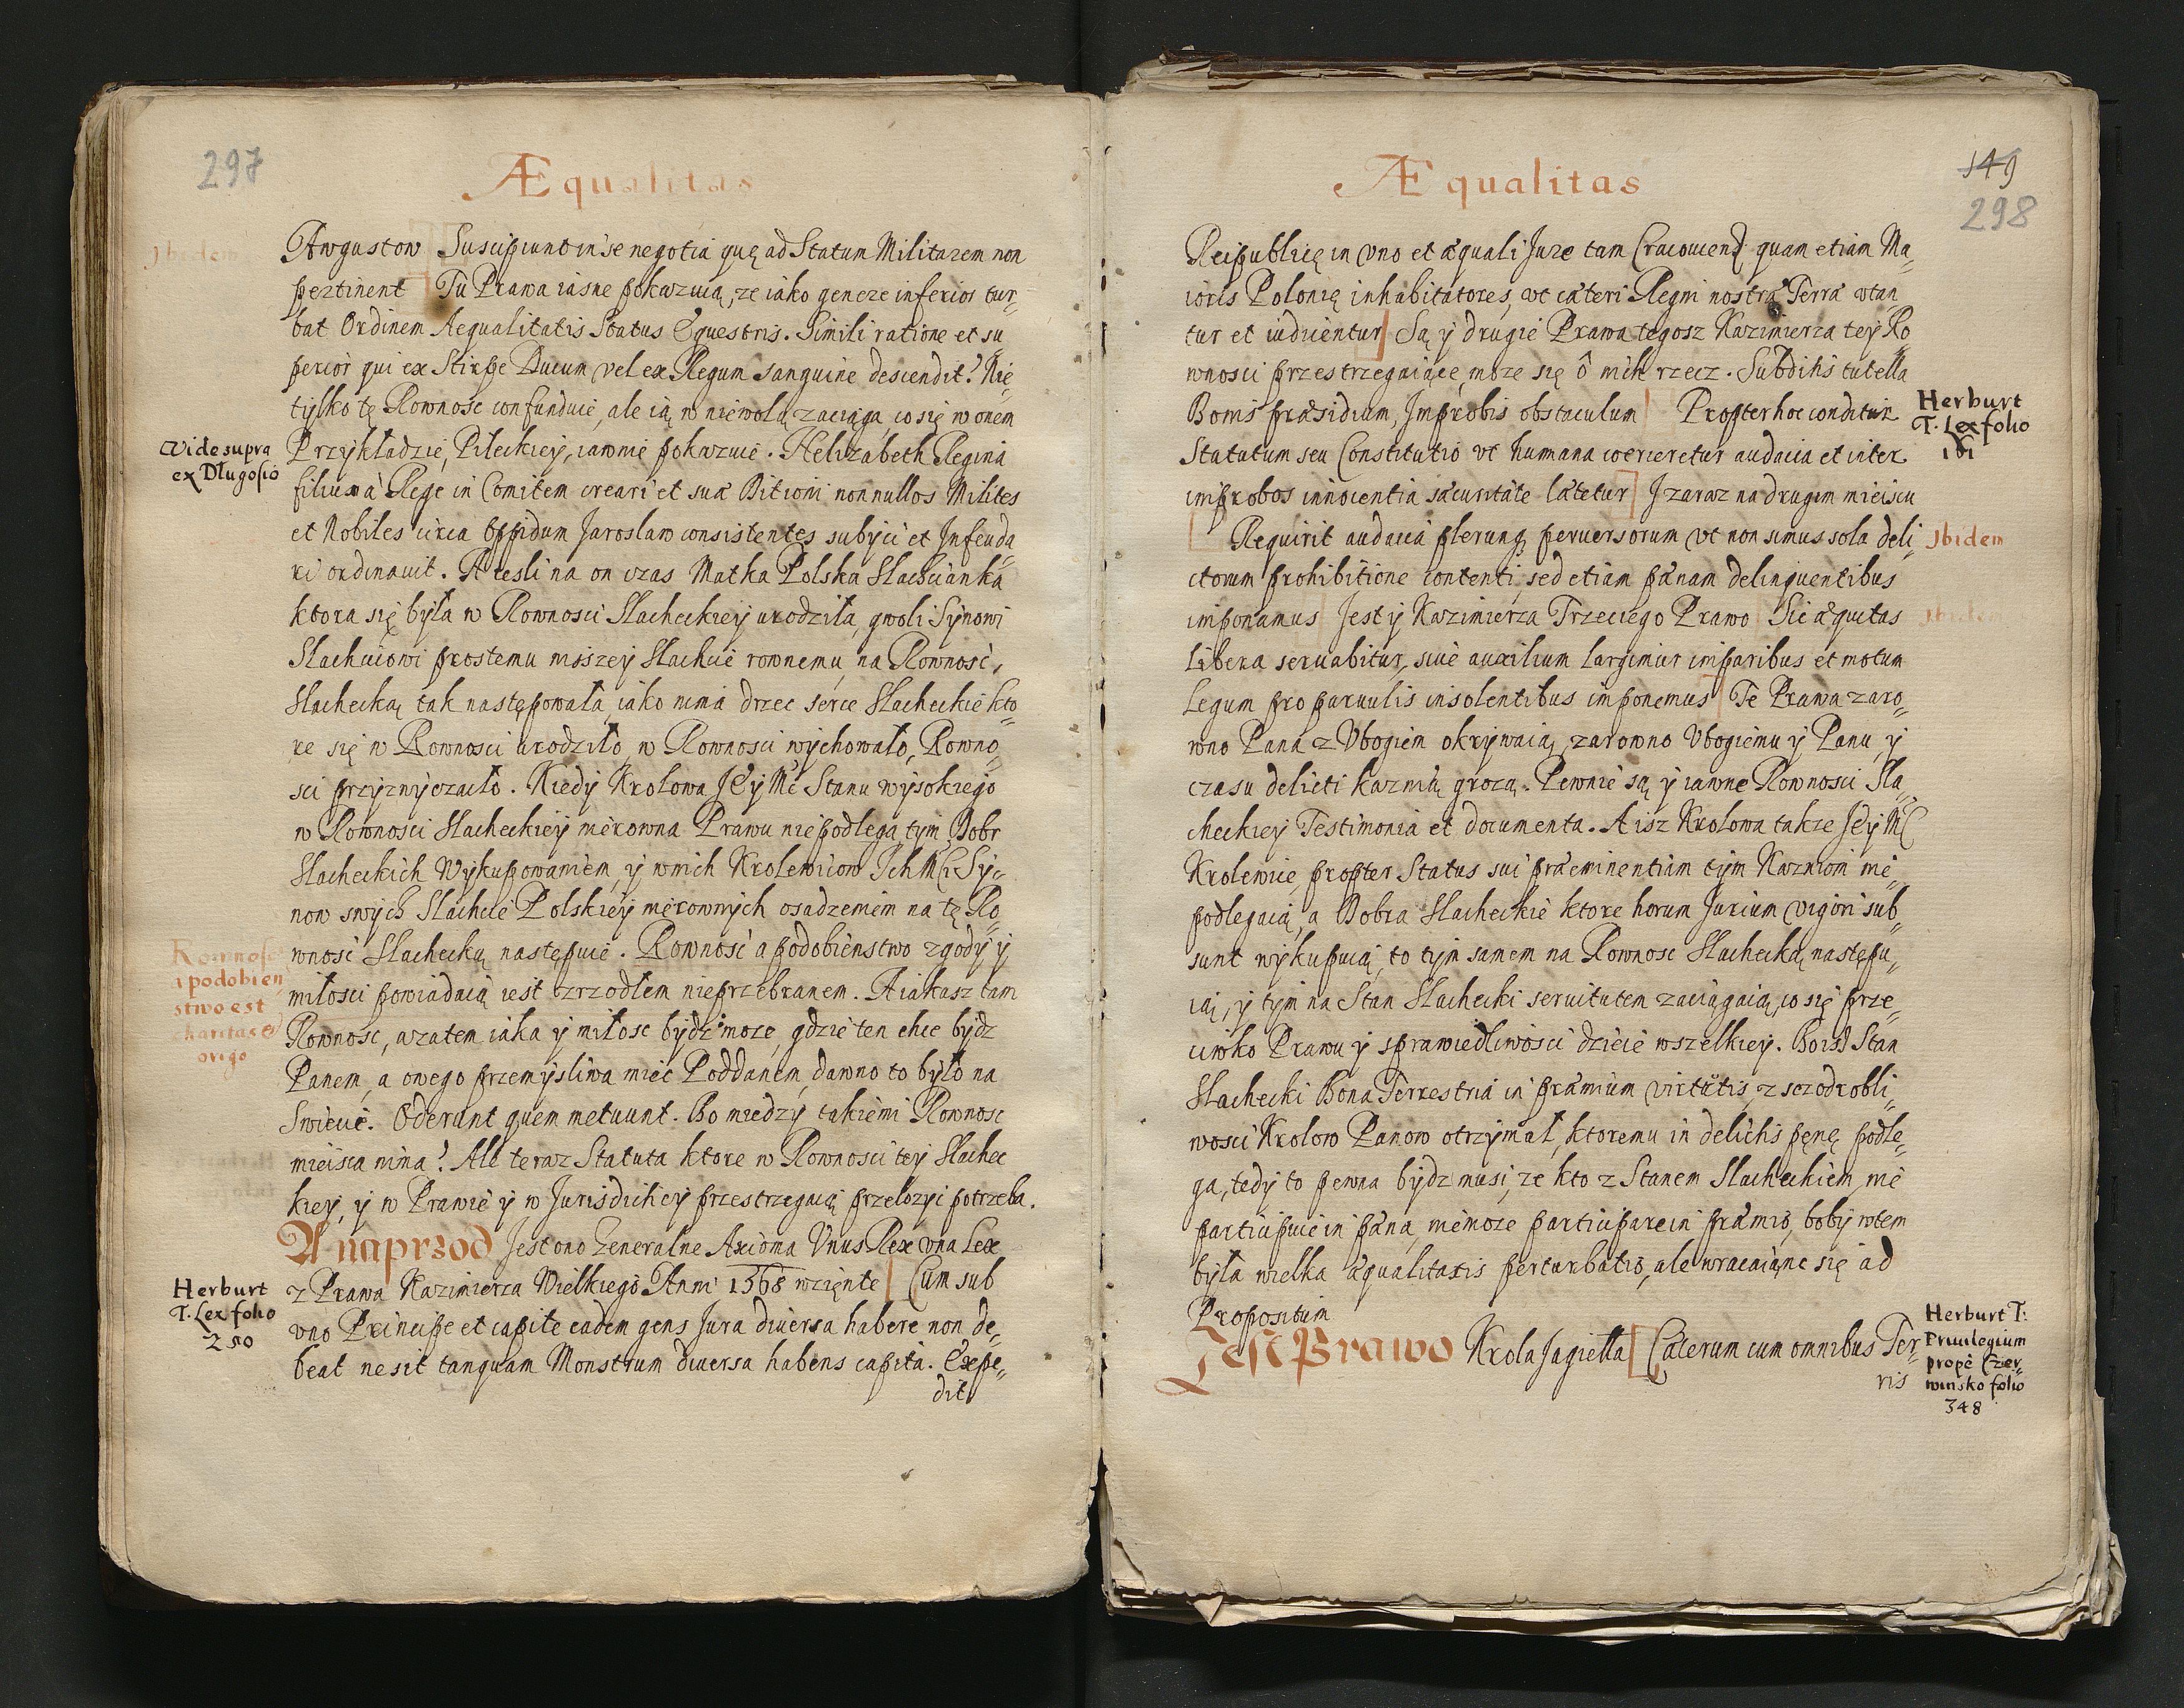 297
Æqualitas
Ibidem
Awgustow Suscipiunt in se negotia quę ad Statum Militarem non
pertinent Tu Prawa iasne pokazuią, ze iako genere inferior tur⸗
bat Ordinem Aequalitatis Status Equestris. Simili ratione et su
perior qui ex Stirpe Ducum vel ex Regum sanguine descendit? Nie
tylko tę Rownosc confunduie, ale ią w niewolą zaciąga, co się w onem
Vide supra
ex Długosio
Przykładzie, Pileckiey, iawnie pokazuie. Helizabeth Regina
filium à Rege in Comitem creari et suæ Ditioni nonnullos Milites
et Nobiles circa Oppidum Jaroslaw consistentes subyci et Infeuda
ri ordinauit. A iesli na on czas Matka Polska Slachcianka
ktora się była w Rownosci Slacheckiey urodziła, gwoli Synowi
Slachcicowi prostemu inszey Slachcie rownemu, na Rownosc,
Slachecką tak następowała, iako nima drzec serce Slacheckie kto⸗
re się w Rownosci urodziło, w Rownosci wychowało, Rowno⸗
sci przyzwyczaiło. Kiedy Krolowa Jey Mc Stanu wysokiego
w Rownosci Slacheckiey nierowna Prawu niepodlega tym Dobr
Slacheckich Wykupowaniem, y w nich Krolewicow Ich Mci Sy⸗
now swych Slachcie Polskiey nierownych osadzeniem na tę Ro⸗
wnosc Slachecką nastepuie. Rownosc a podobienstwo zgody y
Rownosc
a podobien
stwo est
charitatis
origo
miłosci powiadaią iest zrzodłem nieprzebranem. A iakasz tam
Rownosc, a zatem iaka y miłosc bydz moze, gdzie ten chce bydz
Panem, a owego przemysliwa miec Poddanem, dawno to było na
Swiecie. Oderunt quem metuunt. Bo miedzy takiemi Rownosc
mieisca nima? Ale teraz Statuta ktore w Rownosci tey Slachec
kiey, y w Prawie y w Jurisdictiey przestrzegaią przelozyc potrzeba.
A naprzod Jest ono Generalne Axioma Unus Rex una Lex
Herburt
T. Lex folio
250
z Prawa Kazimierza Wielkiego Anni 1368 wzięnte [Cum sub
uno Principe et capite eadem gens Jura diuersa habere non de⸗
beat ne sit tanquam Monstrum diuersa habens capita. Expe⸗
dit
149
298
Æqualitas
Reipublicę in uno et æquali Jure tam Cracouien. quam etiam Ma⸗
ioris Polonię inhabitatores, ut cæteri Regni nostri Terræ utan⸗
tur et iudicentur] Są y drugie Prawa tegosz Kazimierza tey Ro
wnosci przestrzegaiące, moze się ô nich rzecz. Subditis tutella
Bonis præsidium, Improbis obstaculum Propter hoc conditur
Herburt
T. Lex folio
ibi
Statutum seu Constitutio ut humana coerceretur audacia et inter
improbos innocentia sæcuritate lætetur] I zaraz na drugim mieiscu
[Requirit audacia plerunq peruersorum ut non simus sola deli⸗
Ibidem
ctorum prohibitione contenti, sed etiam pænam delinquentibus
imponamus Jest y Kazimierza Trzeciego Prawo Sic æquitas
Ibidem
Libera seruabitur, siue auxilium largimur imparibus et motum
Legum pro paruulis insolentibus imponemus Te Prawa zaro⸗
wno Pana z Ubogiem okrywaią, zarowno Ubogiemu y Panu, y
czasu delicti kaznią grozą. Pewnie są y iawne Rownosci Sla⸗
checkiey Testimonia et documenta. A isz Krolowa takze Jey Mć
Krolewice, propter Status sui præeminentiam tym Kazniom nie
podlegaią, a Dobra Slacheckie ktore horum Jurium vigori sub⸗
sunt wykupuią, to tym samem na Rownosc Slachecką następu⸗
ią, y tym na Stan Slachecki seruitutem zaciągaią, co się prze⸗
ciwko Prawu y sprawiedliwosci dzieie wszelkiey. Bo isz Stan
Slachecki Bona Terrestria in præmium virtutis, z sczodrobli⸗
wosci Krolow Panow otrzymał, ktoremu in delictis pęnę podle⸗
ga, tedy to pewna bydz musi, ze kto z Stanem Slacheckiem nie
participuie in pæna, niemoze participare in præmio, boby w tem
była wielka æqualitatis perturbatio, ale wracaiąnc się ad
Propositum
Jest Prawo Krola Jagiełła [Cæterum cum omnibus Ter⸗
ris
Herburt T:
Priuilegium
propè Czer⸗
winsko folio
348